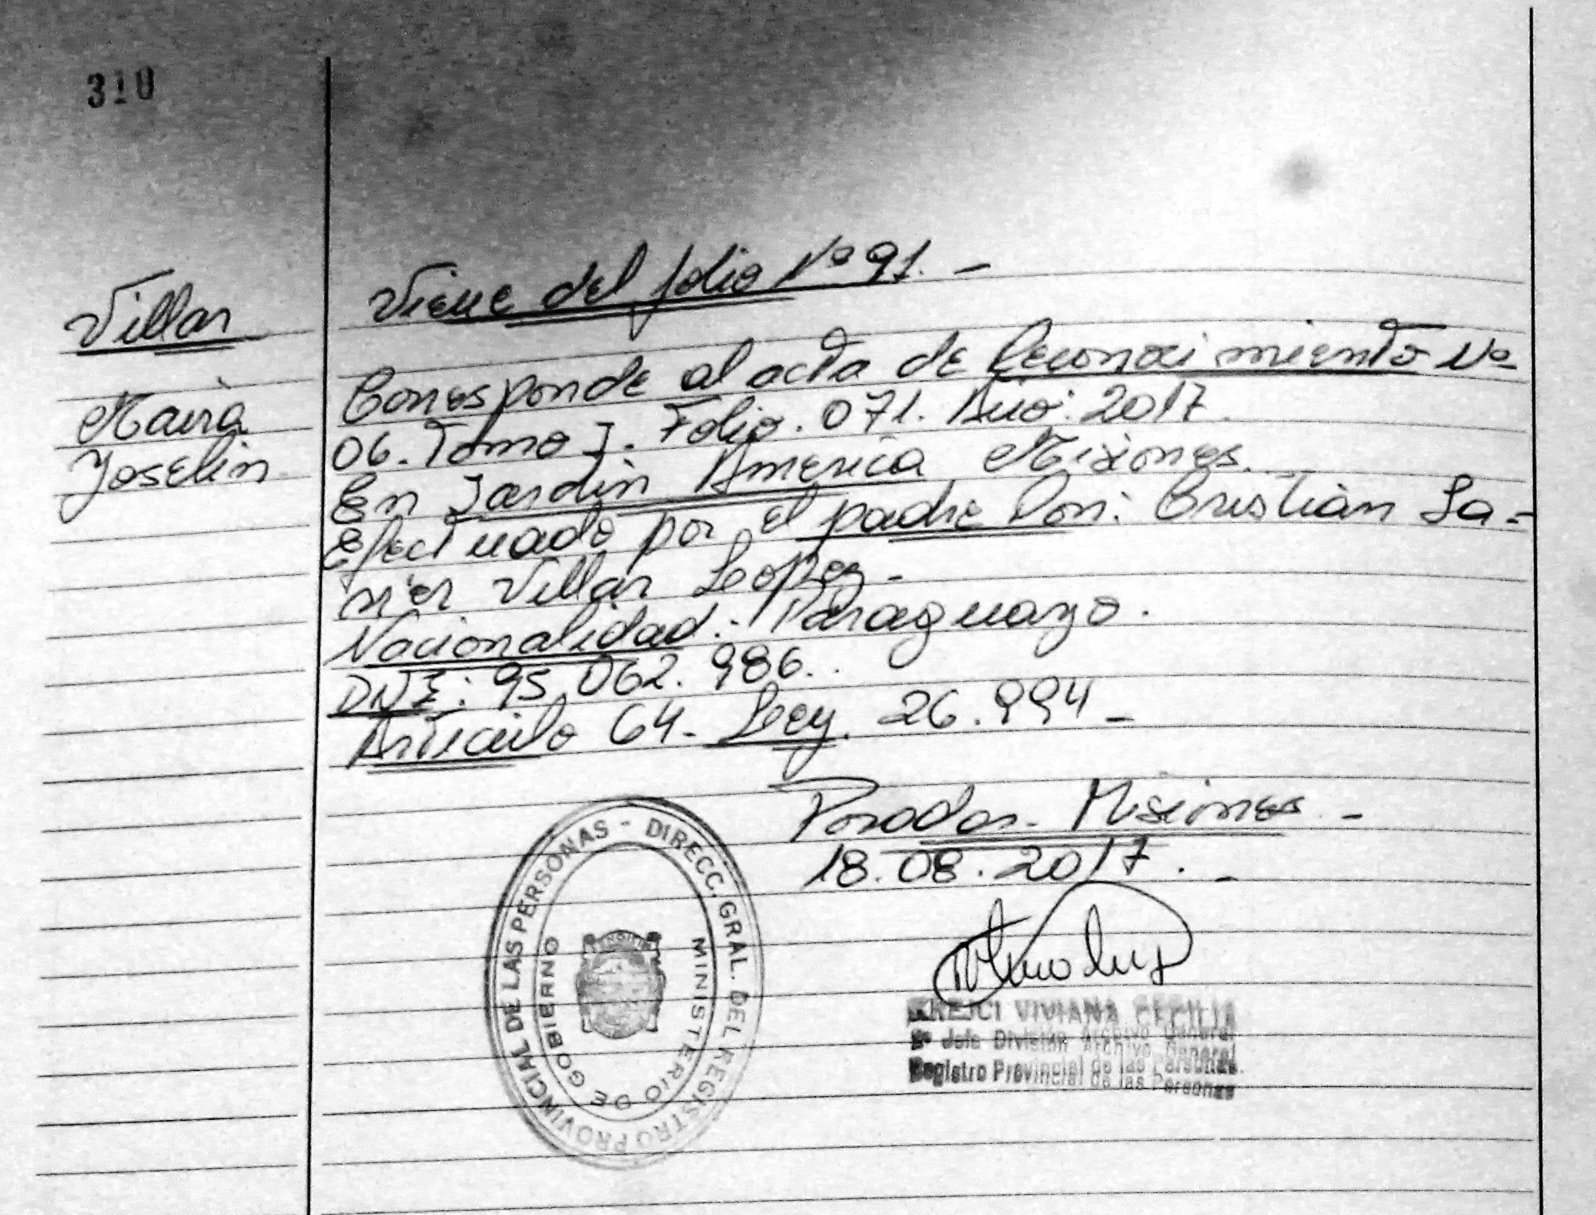 310
Villar
Maira
Joselin
Viene del folio Nº 91.-
Corresponde al acta de Reconocimiento Nº
06. Tomo I. Folio. 071. Año: 2017.
En Jardín América Misiones.
Efectuado por el padre Don: Cristian Ja-
vier Villar Lopez.-
Nacionalidad.- Paraguayo.
DNI: 95.062.986.
Articulo 64- Ley. 26.994-
Posadas- Misiones-
18.08.2017.-
DIRECC. GRAL. DEL REGISTRO PROVINCIAL DE LAS PERSONAS -
MINISTERIO DE GOBIERNO
KREJCI VIVIANA CECILIA
2º Jefe División Archivo General
Registro Provincial de las Personas